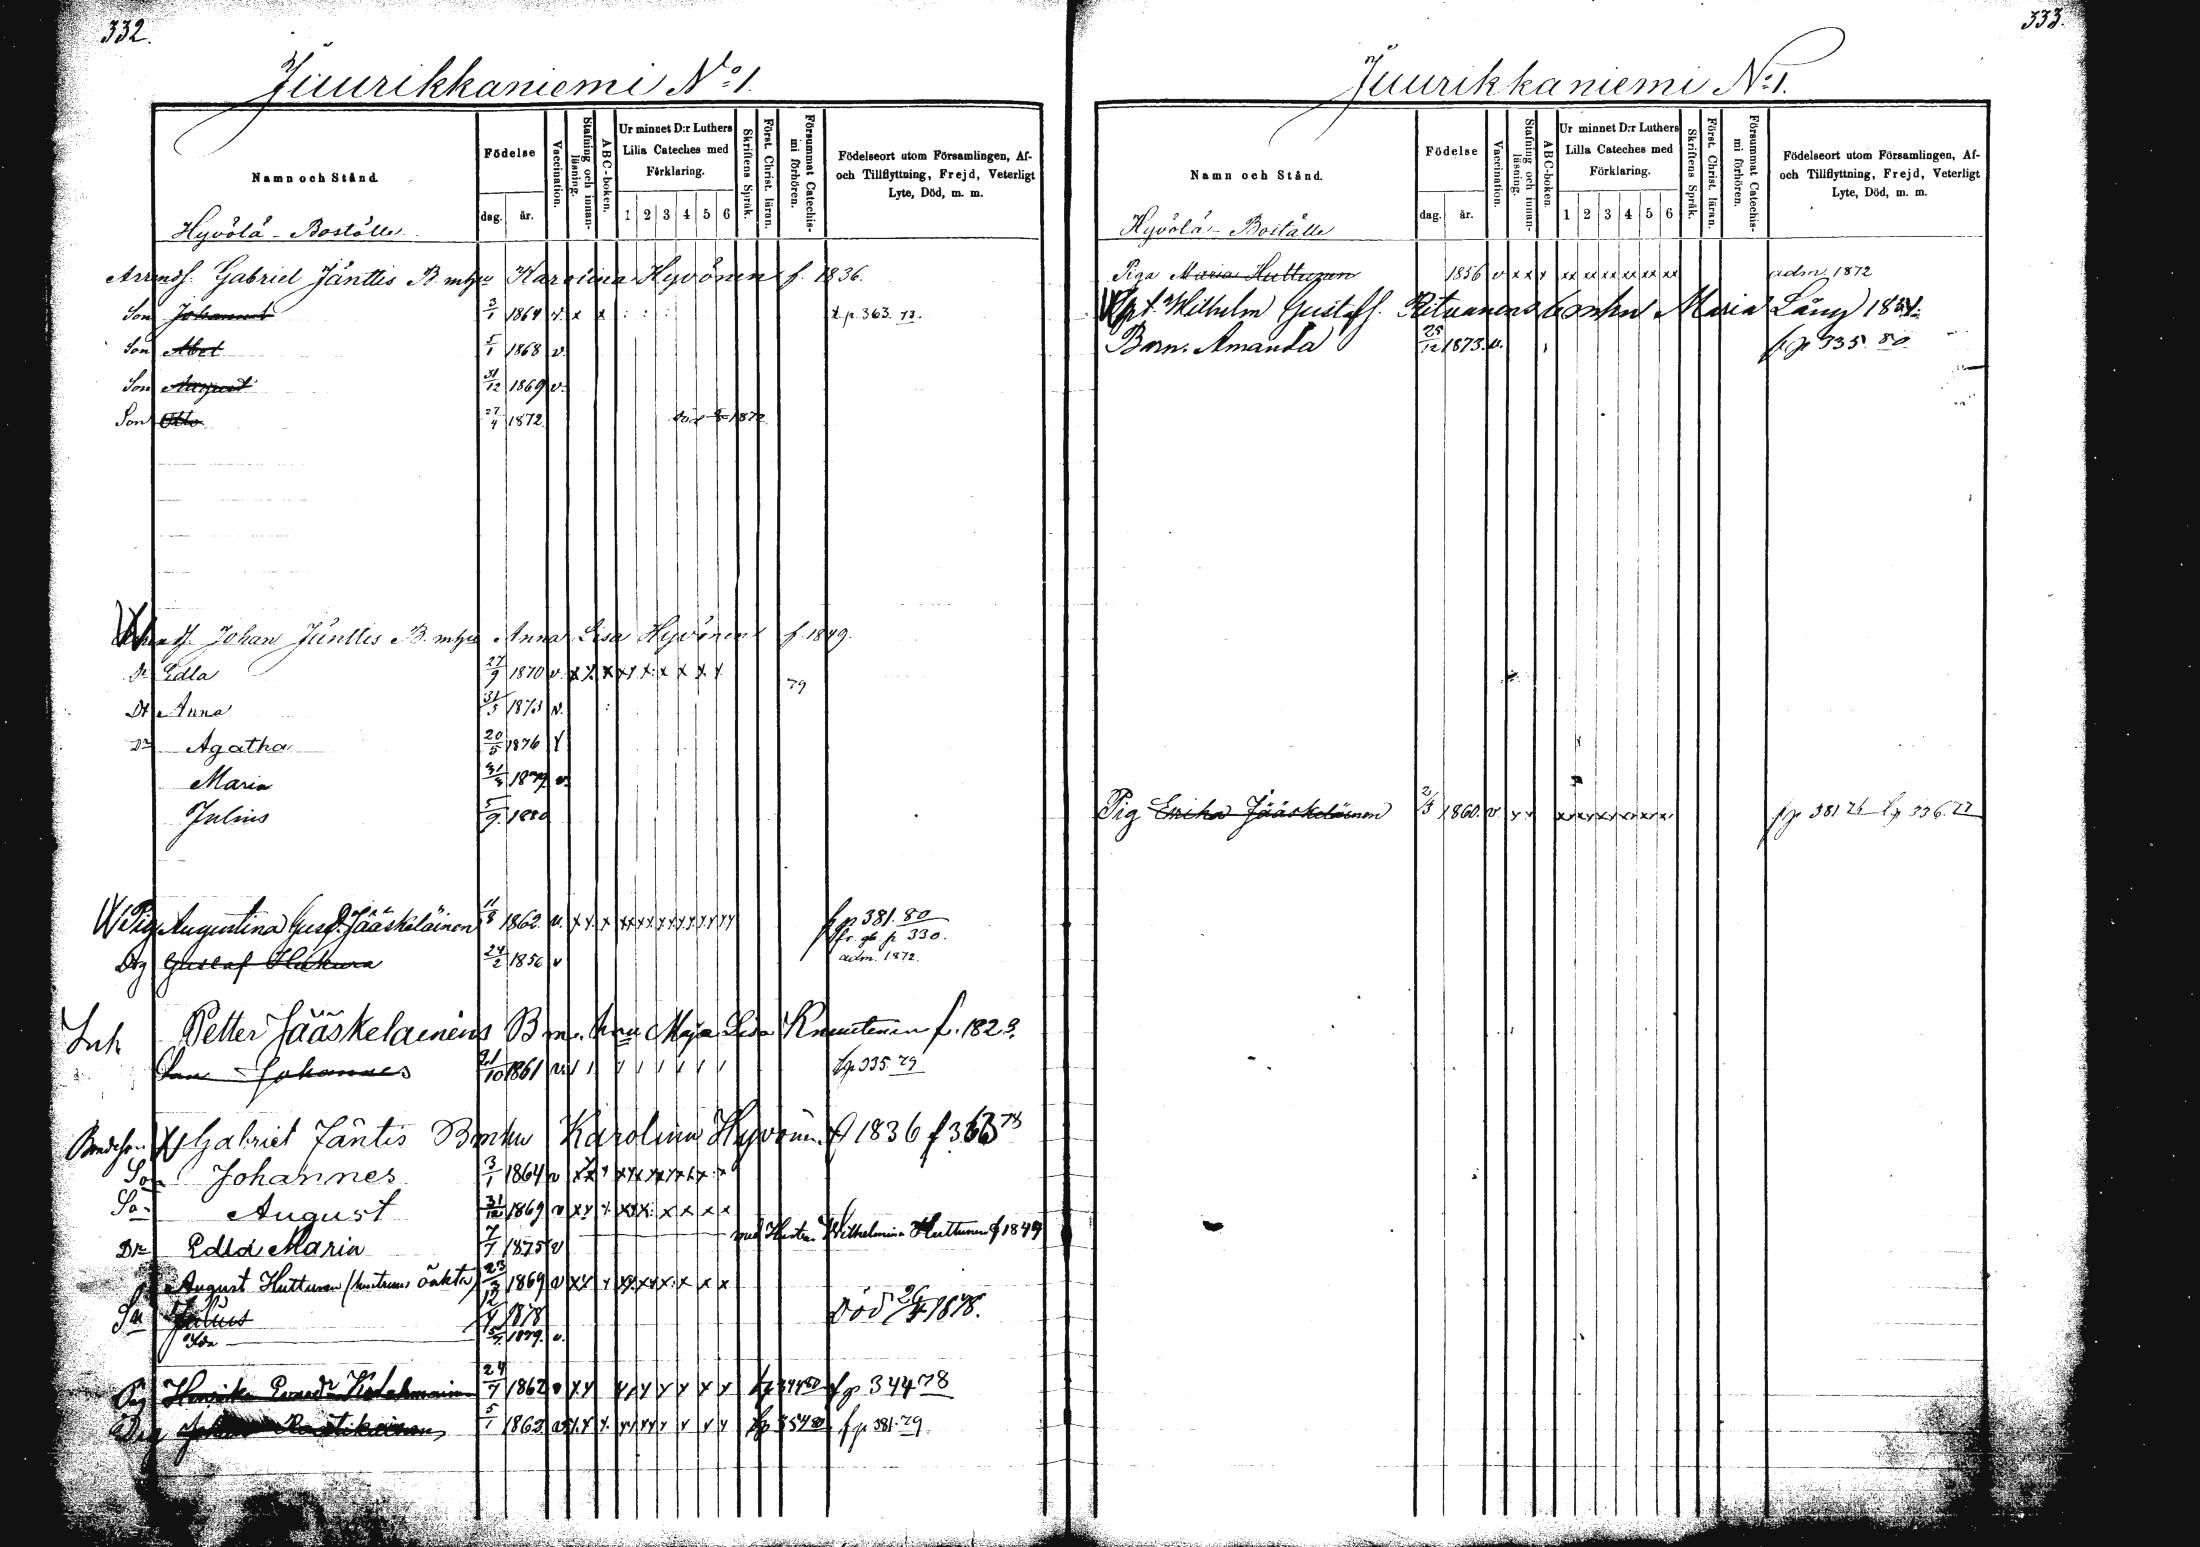 332.
Juurikkaniemi No 1.
Namn och Stånd
Födelse
dag. år.
Vaccination.
Stafning och innanläsning.
ABC-boken.
Ur minnet D:r Luthers Lilla Cateches med Förklaring.
1 2 3 4 5 6
Skriftens Språk.
Först. Christ. läran.
Försummat Catechismi förhören.
Födelseort utom Församlingen, Af- och Tillflyttning, Frejd, Veterligt Lyte, Död, m. m.
Hyvölä - Boställe
Gabriel Jänttis B. mhu Karolina Hyvönen f. 1836.
Son Johannes 3/1 1864 v. x x t. p. 363. 73.
Son Abel 5/1 1868 v.
Son August 31/12 1869 v.
Son Otto 27/4 1872 1872
Johan Jänttis B. mhu Anna Lisa Hyvönen f. 1849.
Dr Edla 27/9 1870 v. x x x x x x x x x 79
Dt Anna 31/5 1873 v.
Dr Agatha 20/5 1876 v
Maria 31/3 1879 v.
Julius 5/9 1880
Pig Augustina Gusd. Jääskeläinen 11/8 1862 v. f p 381. 80
fr. p. 330.
Drg Gustaf 24/2 1856 v adm. 1872.
Inh Petter Jääskelainens B m. hru Maja Lisa Knuutinen f. 1823.
Son Johannes 21/10 1861 v. t p 335. 79
Gabriel Jäntis B mhu Karolina Hyvönen f 1836 f 363 78
Son Johannes 3/1 1864 v
Son August 31/12 1869 v
med Hustr. Wilhelmina Huttunen f 1849
Dr Edla Maria 7/7 1875 v
August Huttunen (hustruns oäkta) 23/3 1869 v
Son Julius 12/4 1878 Död 26/4 1878.
Ida 5/7 1879. v.
Pig Henrika 24/7 1862 v f p 344 78
Drg 5/1 1862 v f p 381. 79
333.
Juurikkaniemi No 1.
Namn och Stånd.
Födelse
dag. år.
Vaccination.
Stafning och innanläsning.
ABC-boken.
Ur minnet D:r Luthers Lilla Cateches med Förklaring.
1 2 3 4 5 6
Skriftens Språk.
Först. Christ. läran.
Försummat Catechismi förhören.
Födelseort utom Församlingen, Af- och Tillflyttning, Frejd, Veterligt Lyte, Död, m. m.
Hyvölä - Boställe
Piga Maria Huttunen 1856 v x x x xx xx xx xx xx xx adm. 1872
Wilhelm Gustaff. mhu Maria Lång
Barn. Amanda 25/12 1873. v. f. p 335. 80
Pig Erika Jääskeläinen 2/3 1860. v f p 381 76 t p 336. 77